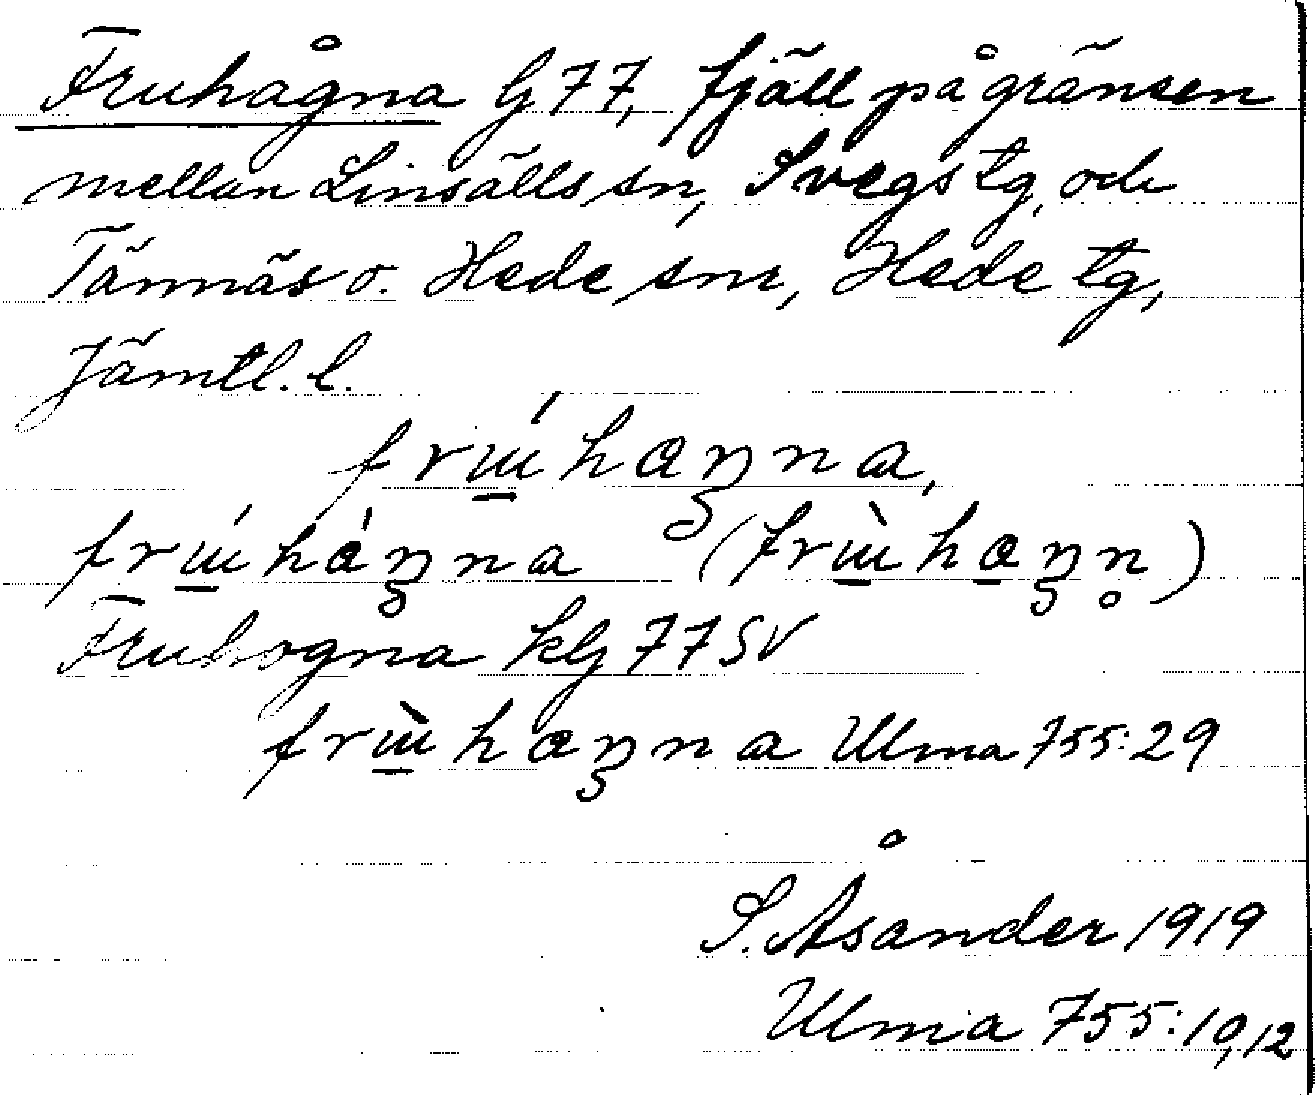 Fruhågna G 77, fjäll på gränsen
mellan Linsälls sn, Svegs tg, och
Tännäs o. Hede snr, Hede tg,
Jämtl. l.
frɯ̲́haŋna,
frɯ̲́hàŋna (frɯ̲̀ha̲ŋn̥)
Fruhogna kbl 77 SV
frɯ̲̀haŋna Ulma 755:29
S. Åsander 1919
Ulma 755:10,12